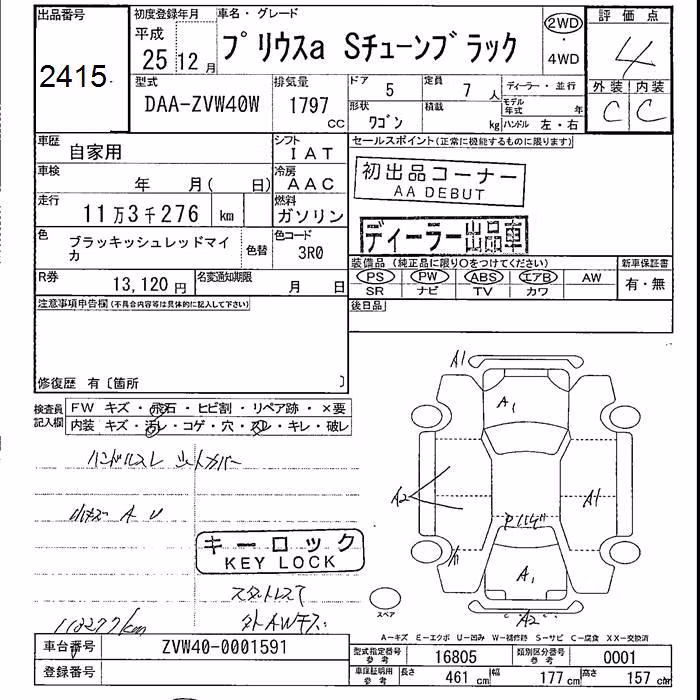 出品番号
2415
初度登録年月
平成
25 12月
車名・グレード
プリウスa Sチューンブラック
2WD
・
4WD
評価点
4
外装 内装
C C
型式
DAA-ZVW40W
排気量
1797
CC
ドア 5
定員 7 人
形状 ワゴン
積載 kg
ディーラー・並行
モデル年式 年
ハンドル 左・右
車歴
自家用
シフト
IAT
車検
年 月( 日)
冷房
AAC
走行
11万3千276 km
燃料
ガソリン
色
ブラッキッシュレッドマイカ
色替
色コード
3R0
R券
13,120円
名変通知期限
月 日
セールスポイント(正常に機能するものに限ります)
初出品コーナー
AA DEBUT
ディーラー出品車
装備品 (純正品に限り○をつけてください)
PS PW ABS エアB AW
SR ナビ TV カワ
新車保証書
有・無
後日品
注意事項申告欄(不具合内容等は具体的に記入して下さい)
修復歴 有〔箇所 〕
検査員記入欄
FW キズ・飛石・ヒビ割・リペア跡・×要
内装 キズ・汚レ・コゲ・穴・スレ・キレ・破レ
ハンドルスレ シートカバー
小キズ A U
キーロック
KEY LOCK
スタットレス
113277km
A1
A1
A2
A1
A1
A2
スペア
A－キズ E－エクボ U－凹み W－補修跡 S－サビ C－腐食 XX－交換済
車台番号
ZVW40-0001591
登録番号
型式指定番号 参考
16805
類別区分番号 参考
0001
車庫証明用 参考
長さ 461 cm
幅 177 cm
高さ 157 cm